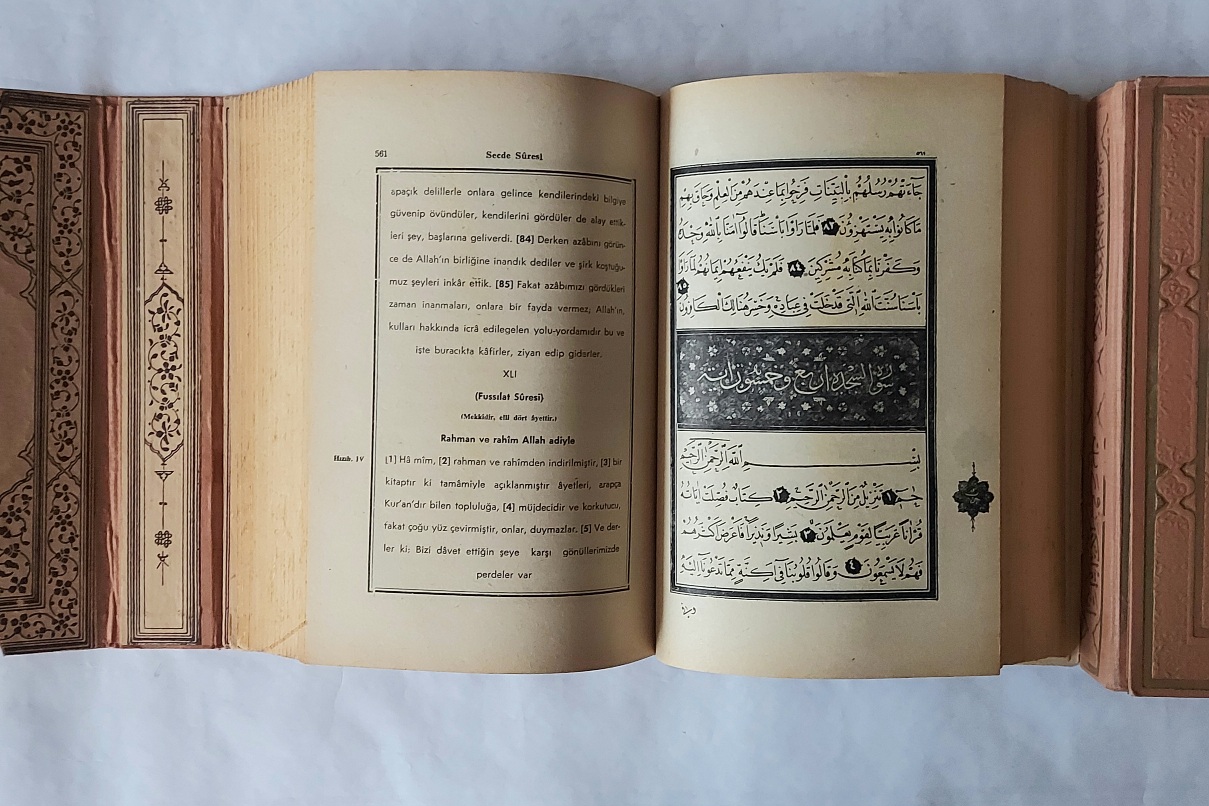 561
Secde Sûresi
apaçık delillerle onlara gelince kendilerindeki bilgiye
güvenip övündüler, kendilerini gördüler de alay ettik-
leri şey, başlarına geliverdi. [84] Derken azâbını görün-
ce de Allah'ın birliğine inandık dediler ve şirk koştuğu-
muz şeyleri inkâr ettik. [85] Fakat azâbımızı gördükleri
zaman inanmaları, onlara bir fayda vermez; Allah'ın,
kulları hakkında icrâ edilegelen yolu-yordamıdır bu ve
işte buracıkta kâfirler, ziyan edip giderler.
XLI
(Fussılat Sûresi)
(Mekkîdir, elli dört âyettir.)
Rahman ve rahîm Allah adiyle
Hızıb. IV
[1] Hâ mîm, [2] rahman ve rahîmden indirilmiştir, [3] bir
kitaptır ki tamâmiyle açıklanmıştır âyetleri, arapça
Kur'an'dır bilen topluluğa, [4] müjdecidir ve korkutucu,
fakat çoğu yüz çevirmiştir, onlar, duymazlar. [5] Ve der-
ler ki: Bizi dâvet ettiğin şeye karşı gönüllerimizde
perdeler var
٥٦١
جَاءَتْهُمْ رُسُلُهُمْ بِالْبَيِّنَاتِ فَرِحُوا بِمَا عِنْدَهُمْ مِنَ الْعِلْمِ وَحَاقَ بِهِمْ
مَا كَانُوا بِهِ يَسْتَهْزِؤُنَ ٨٣ فَلَمَّا رَاَوْا بَاْسَنَا قَالُوا آمَنَّا بِاللّٰهِ وَحْدَهُ
وَكَفَرْنَا بِمَا كُنَّا بِهِ مُشْرِكِينَ ٨٤ فَلَمْ يَكُ يَنْفَعُهُمْ اِيمَانُهُمْ لَمَّا رَاَوْا
بَاْسَنَا سُنَّتَ اللّٰهِ الَّتِي قَدْ خَلَتْ فِي عِبَادِهِ وَخَسِرَ هُنَالِكَ الْكَافِرُونَ ٨٥
سورة السجدة اربع وخمسون آية
بِسْمِ اللّٰهِ الرَّحْمٰنِ الرَّحِيمِ
حٰمٓ ١ تَنْزِيلٌ مِنَ الرَّحْمٰنِ الرَّحِيمِ ٢ كِتَابٌ فُصِّلَتْ اٰيَاتُهُ
قُرْاٰنًا عَرَبِيًّا لِقَوْمٍ يَعْلَمُونَ ٣ بَشِيرًا وَنَذِيرًا فَاَعْرَضَ اَكْثَرُهُمْ
فَهُمْ لَا يَسْمَعُونَ ٤ وَقَالُوا قُلُوبُنَا فِي اَكِنَّةٍ مِمَّا تَدْعُونَا اِلَيْهِ